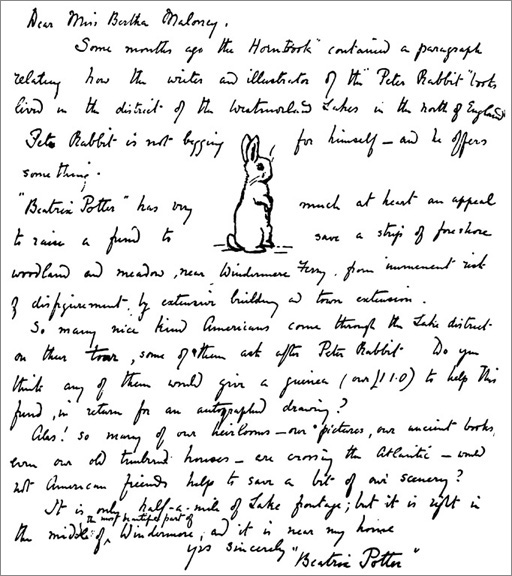 Dear Miss Bertha Mahoney.
Some months ago the Hornbook" contained a paragraph
relating how the writer and illustrator of the "Peter Rabbit" books
lived in the district of the Westmorland Lakes in the north of England
Peter Rabbit is not begging for himself – and he offers
something.
"Beatrix Potter" has very much at heart an appeal
to raise a fund to save a strip of foreshore
woodland and meadow, near Windermere Ferry, from imminent risk
of disfigurement by extensive building and town extension.
So many nice kind Americans come through the Lake district
on their tour, some of them ask after Peter Rabbit. Do you
think any of them would give a guinea (our £1.1.0) to help this
fund, in return for an autographed drawing?
Alas! so many of our heirlooms – our pictures, our ancient books,
even our old timbered houses – are crossing the Atlantic – would
not American friends help to save a bit of our scenery?
It is only half-a-mile of Lake frontage; but it is right in
the most beautiful part of
the middle of Windermere, and it is near my home
yrs sincerely "Beatrix Potter"